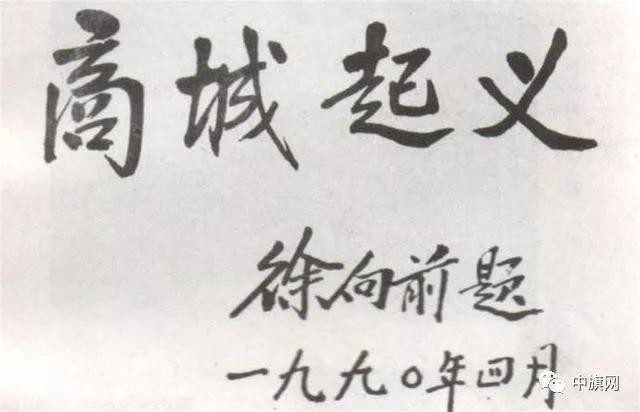 商城起义
徐向前题
一九九〇年四月
中旗网